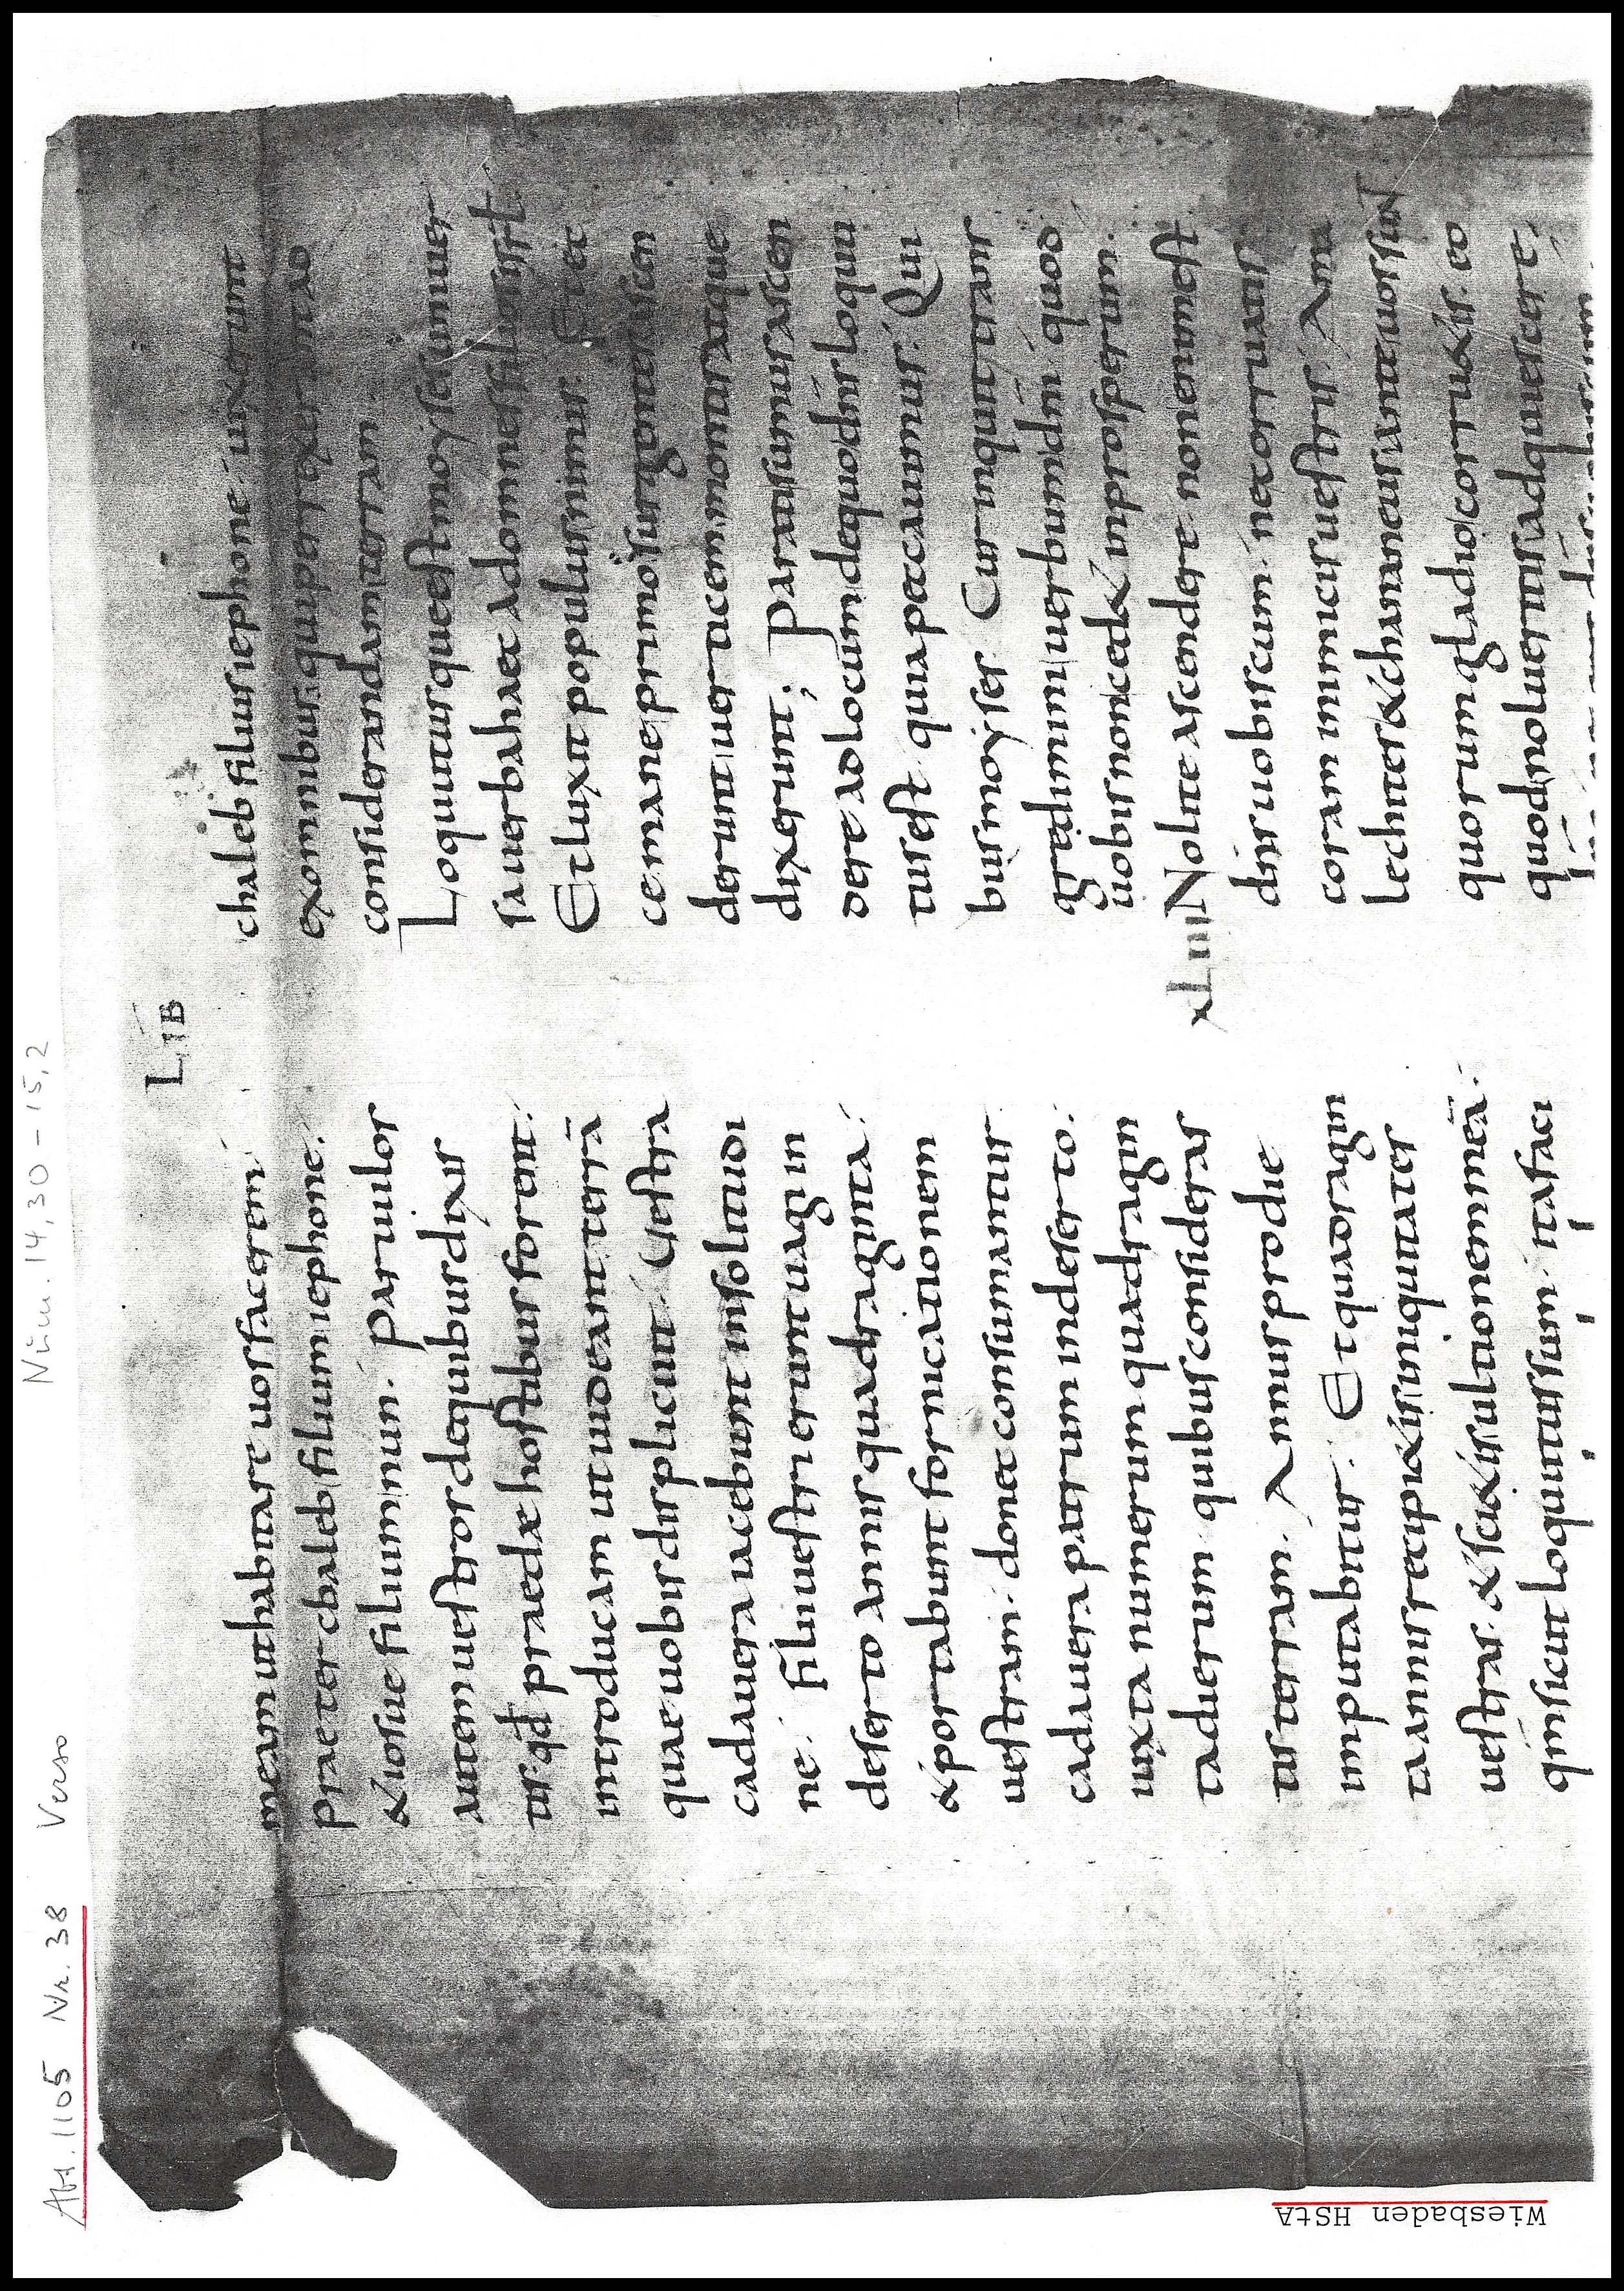 Abt. 1105 Nr. 38 Verso
Num. 14,30 – 15,2
LIB
meam ut habitare uos facerem
praeter chaleb filium iephone.
& iosue filium nun. Paruulos
autem uestros de quibus dixis
tis. qd praedae hostibus forent.
introducam ut uideant terrā
quae uobis displicuit. Uestra
cadauera iacebunt in solitudi
ne. Filii uestri erunt uagi in
deserto annis quadraginta.
& portabunt fornicationem
uestram. donec consumantur
cadauera patrum in deserto.
iuxta numerum quadragin
ta dierum quibus consideras
tis terram. Annus pro die
imputabitur. Et quadragin
ta annis recipi&is iniquitates
uestras. & sci&is ultionem meā.
qm sicut locutus sum. ita faci
chaleb filius iephone. uixerunt
ex omnibus qui perrexerant ad
considerandam terram.
Locutusque est moyses uniuer
sa uerba haec ad omnes filios isrł.
Et luxit populus nimis. Et ec
ce mane primo surgentes ascen
derunt uerticem montis atque
dixerunt; Parati sumus ascen
dere ad locum de quo dns locu
tus est. quia peccauimus. Qui
bus moyses Cur inquit trans
gredimini uerbum dni quod
uobis non ced& in prosperum.
XLIIII Nolite ascendere non enim est
dns uobiscum. ne corruatis
coram inimicis uestris. Ama
lechites & chananeus ante uos sunt
quorum gladio corru&is. eo
quod nolueritis adquiescere
Wiesbaden HStA